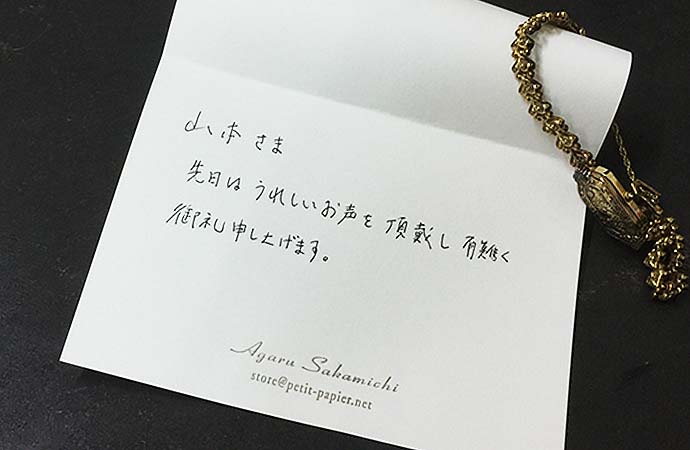 山本さま
先日はうれしいお声を頂戴し有難く
御礼申し上げます。
Agaru Sakamichi
store@petit-papier.net